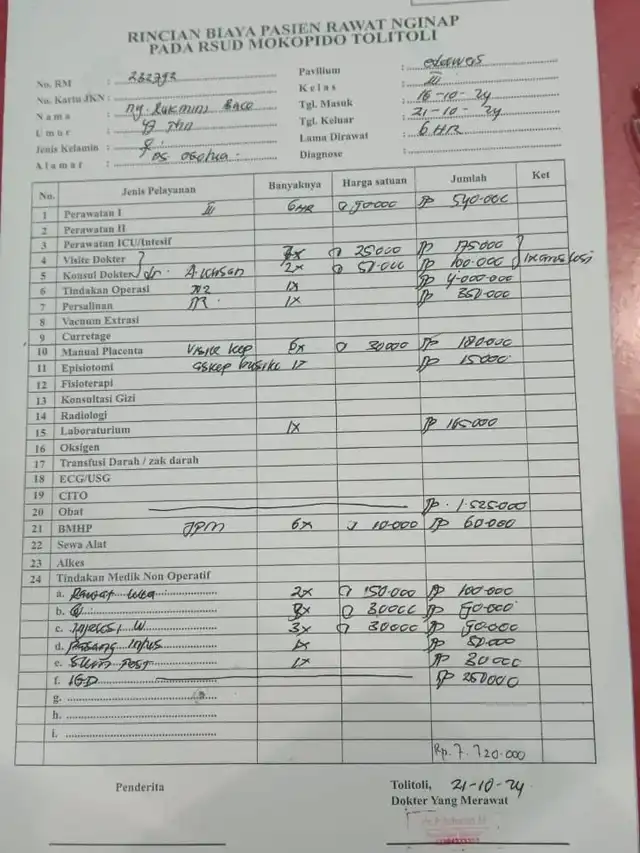 RINCIAN BIAYA PASIEN RAWAT NGINAP
PADA RSUD MOKOPIDO TOLITOLI
No. RM : 232792
No. Kartu JKN :
Nama : Ny. Rukmini Baco
Umur :
Jenis Kelamin :
Alamat : Ds.
Pavilium :
Kelas : III
Tgl. Masuk : 16-10-24
Tgl. Keluar : 21-10-24
Lama Dirawat : 6 HR
Diagnose :
No. Jenis Pelayanan Banyaknya Harga satuan Jumlah Ket
1 Perawatan I III 6 HR @ 90000 Rp 540.000
2 Perawatan II
3 Perawatan ICU/Intesif
4 Visite Dokter @ 25000 Rp 175000
5 Konsul Dokter dr. 2x @ 50.000 Rp 100.000
6 Tindakan Operasi 1x Rp 4.000.000
7 Persalinan 1x Rp 350.000
8 Vacum Extrasi
9 Curretage
10 Manual Placenta Visite kep 6x @ 30000 Rp 180.000
11 Episiotomi Askep Rp 15000
12 Fisioterapi
13 Konsultasi Gizi
14 Radiologi
15 Laboraturium 1x Rp 165.000
16 Oksigen
17 Transfusi Darah / zak darah
18 ECG/USG
19 CITO
20 Obat Rp. 1.525.000
21 BMHP JPM 6x @ 10.000 Rp 60.000
22 Sewa Alat
23 Alkes
24 Tindakan Medik Non Operatif
a. Rawat Luka 2x @ 150.000 Rp 100.000
b. 3x @ 30000 Rp 90.000
c. Injeksi IV 3x @ 30000 Rp 90.000
d. Pasang Infus 1x Rp 50.000
e. 1x Rp 30000
f. IGD Rp 250000
g.
h.
i.
Rp. 7.720.000
Penderita
Tolitoli, 21-10-24
Dokter Yang Merawat